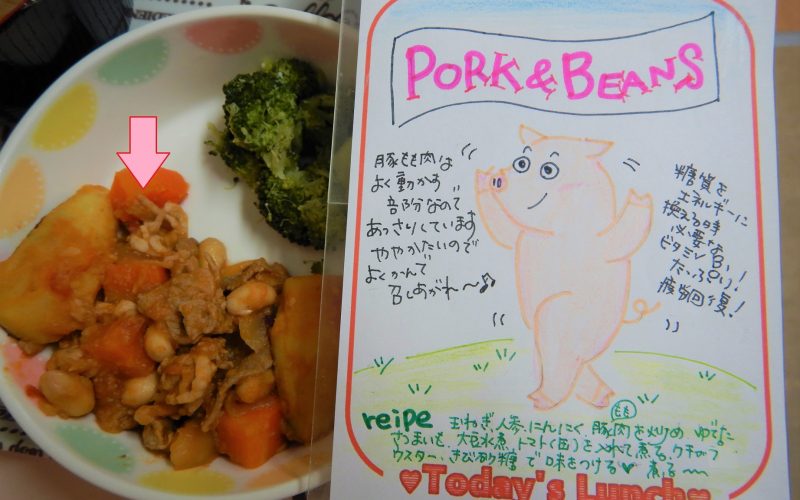 PORK & BEANS
豚もも肉は
よく動かす
部分なので
あっさりしています
ややかたいので
よくかんで
召しあがれ〜♪
糖質を
エネルギーに
換える時
必要な
ビタミンB₁
たっぷり!
疲労回復!
reipe 玉ねぎ、人参、にんにく、豚肉を炒め ゆでた
もも
さつまいも、大豆水煮、トマト(缶)を入れて煮る。ケチャップ
ウスター、きび砂糖で味をつける♥ 煮る〜
♥Today's Lunch♥